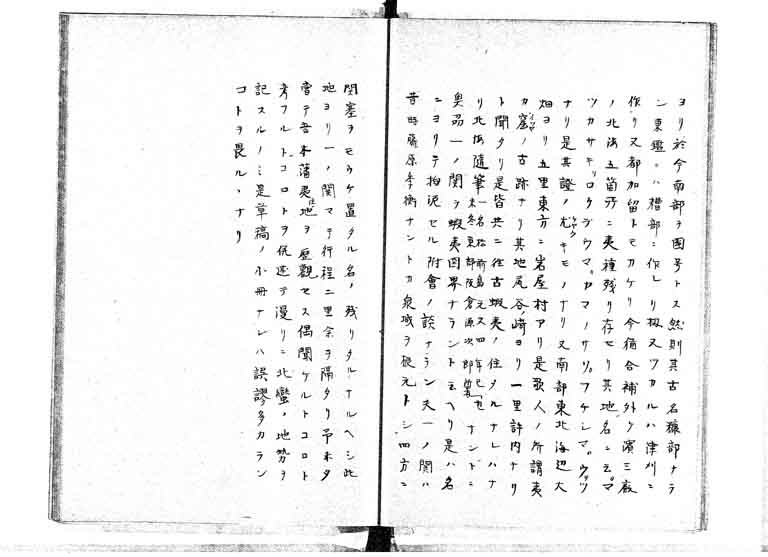 ヨリ於今南部ヲ国号トス然則其古名糠部ナラ
ン東鑑ニハ糟部ニ作レリ扨又ツカルハ津刈ニ
作リ又都加留トモカケリ今宿合補外ケ濱三厩
ノ北海五箇所ニ夷種残リ存セリ其地名ニ云マ
ツカサキリロクヂウマカマノサワフケシマウツ
ナリ是其證ノムキモノナリ又南部東北海辺大
畑ヨリ五里東方ニ岩屋村アリ是歌人ノ所謂夷
カ窟ノ古跡ナリ其地尻谷ノ崎ヨリ一里許内ナリ
ト聞タリ是皆共ニ往古蝦夷ノ住タルナレハナ
リ北海随筆一名松前島元文四年己未冬東部坂倉源次郎著ナンドニ
奥羽一ノ関ヲ蝦夷国界ナラント云ヘリ是ハ名
ニヨリテ拘泥セル附會ノ談ナラン夫一ノ関ハ
昔時藤原季衡ナントカ泉城ヲ根元トシ四方ニ
関塞ヲモウケ置タル名ノ残リタルナルヘシ此
地ヨリ一ノ関マテ行程二里余ヲ隔タリ予未タ
嘗テ吾本藩夷地ヲ歴觀セス偶聞ケルトコロト
考フルトコロトヲ併述テ漫リニ北蠻ノ地勢ヲ
記スルノミ是草稿ノ小冊ナレハ誤謬多カラン
コトヲ畏ルヽナリ